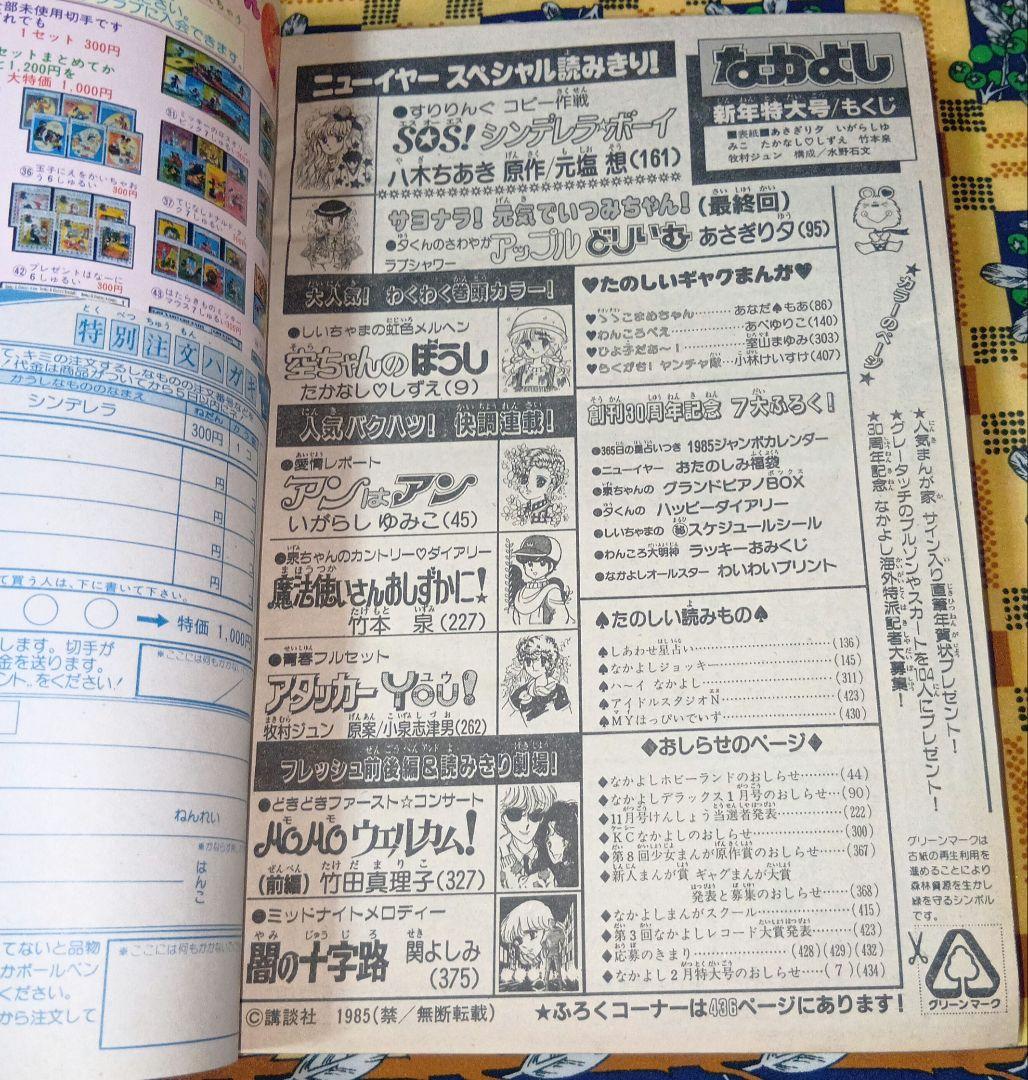 全部未使用切手です
1セット 300円
大特価 1,000円
36 玉子にえをかいちゃおう6しゅるい 300円
42 プレゼントはなーに
6しゅるい 300円
特別注文ハガキ
シンデレラ
300円
円
円
円
て買う人は、下に書いて下さい。
特価 1,000円
ねんれい
はんこ
なかよし
新年特大号/もくじ
■表紙■あさぎり夕 いがらしゆ
みこ たかなし♡しずえ 竹本泉
牧村ジュン 構成/水野石文
ニューイヤー スペシャル読みきり!
●すりりんぐ コピー作戦
SOS! シンデレラ☆ボーイ
八木ちあき 原作/元塩 想(161)
サヨナラ! 元気でいつみちゃん!(最終回)
●夕くんのさわやか
ラブシャワー
アップルどりいむ あさぎり夕(95)
大人気! わくわく巻頭カラー!
●しいちゃまの虹色メルヘン
空ちゃんのぼうし
たかなし♡しずえ(9)
人気バクハツ! 快調連載!
●愛情レポート
アンはアン
いがらし ゆみこ(45)
●泉ちゃんのカントリー♡ダイアリー
魔法使いさんおしずかに!
竹本 泉(227)
●青春フルセット
アタッカーYOU!
牧村ジュン 原案/小泉志津男(262)
フレッシュ前後編&読みきり劇場!
●どきどきファースト☆コンサート
MOMOウェルカム!
(前編) 竹田真理子(327)
●ミッドナイトメロディー
闇の十字路 関よしみ
(375)
©講談社 1985(禁/無断転載)
♥たのしいギャグまんが♥
♥こまめちゃん……あなだ♠もあ(86)
♥わんころべえ……あべゆりこ(140)
♥ひよ子だぁ〜!……室山まゆみ(303)
♥らくがき! ヤンチャ隊…小林けいすけ(407)
創刊30周年記念 7大ふろく!
●365日の星占いつき 1985ジャンボカレンダー
●ニューイヤー おたのしみ福袋
●泉ちゃんの グランドピアノBOX
●夕くんの ハッピーダイアリー
●しいちゃまの ㊙スケジュールシール
●わんころ大明神 ラッキーおみくじ
●なかよしオールスター わいわいプリント
♠たのしい読みもの♠
♠しあわせ星占い……(136)
♠なかよしジョッキー……(145)
♠ハ〜イ なかよし……(311)
♠アイドルスタジオN……(423)
♠MYはっぴいでいず……(430)
◆おしらせのページ◆
◆なかよしホビーランドのおしらせ……(44)
◆なかよしデラックス1月号のおしらせ…(90)
◆11月号けんしょう当選者発表……(222)
◆KCなかよしのおしらせ……(300)
◆第8回少女まんが原作賞のおしらせ…(367)
◆新人まんが賞 ギャグまんが大賞
発表と募集のおしらせ…(368)
◆なかよしまんがスクール……(415)
◆第3回なかよしレコード大賞発表……(423)
◆応募のきまり……(428)(429)(432)
◆なかよし2月特大号のおしらせ……(7)(434)
★ふろくコーナーは436ページにあります!
★カラーのページ★
★人気まんが家 サイン入り直筆年賀状プレゼント!
★グレータッチのブルゾンやスカートを104人にプレゼント!
★30周年記念 なかよし海外特派記者大募集!
グリーンマークは
古紙の再生利用を
進めることにより
森林資源を生かし
緑を守るシンボル
です。
グリーンマーク